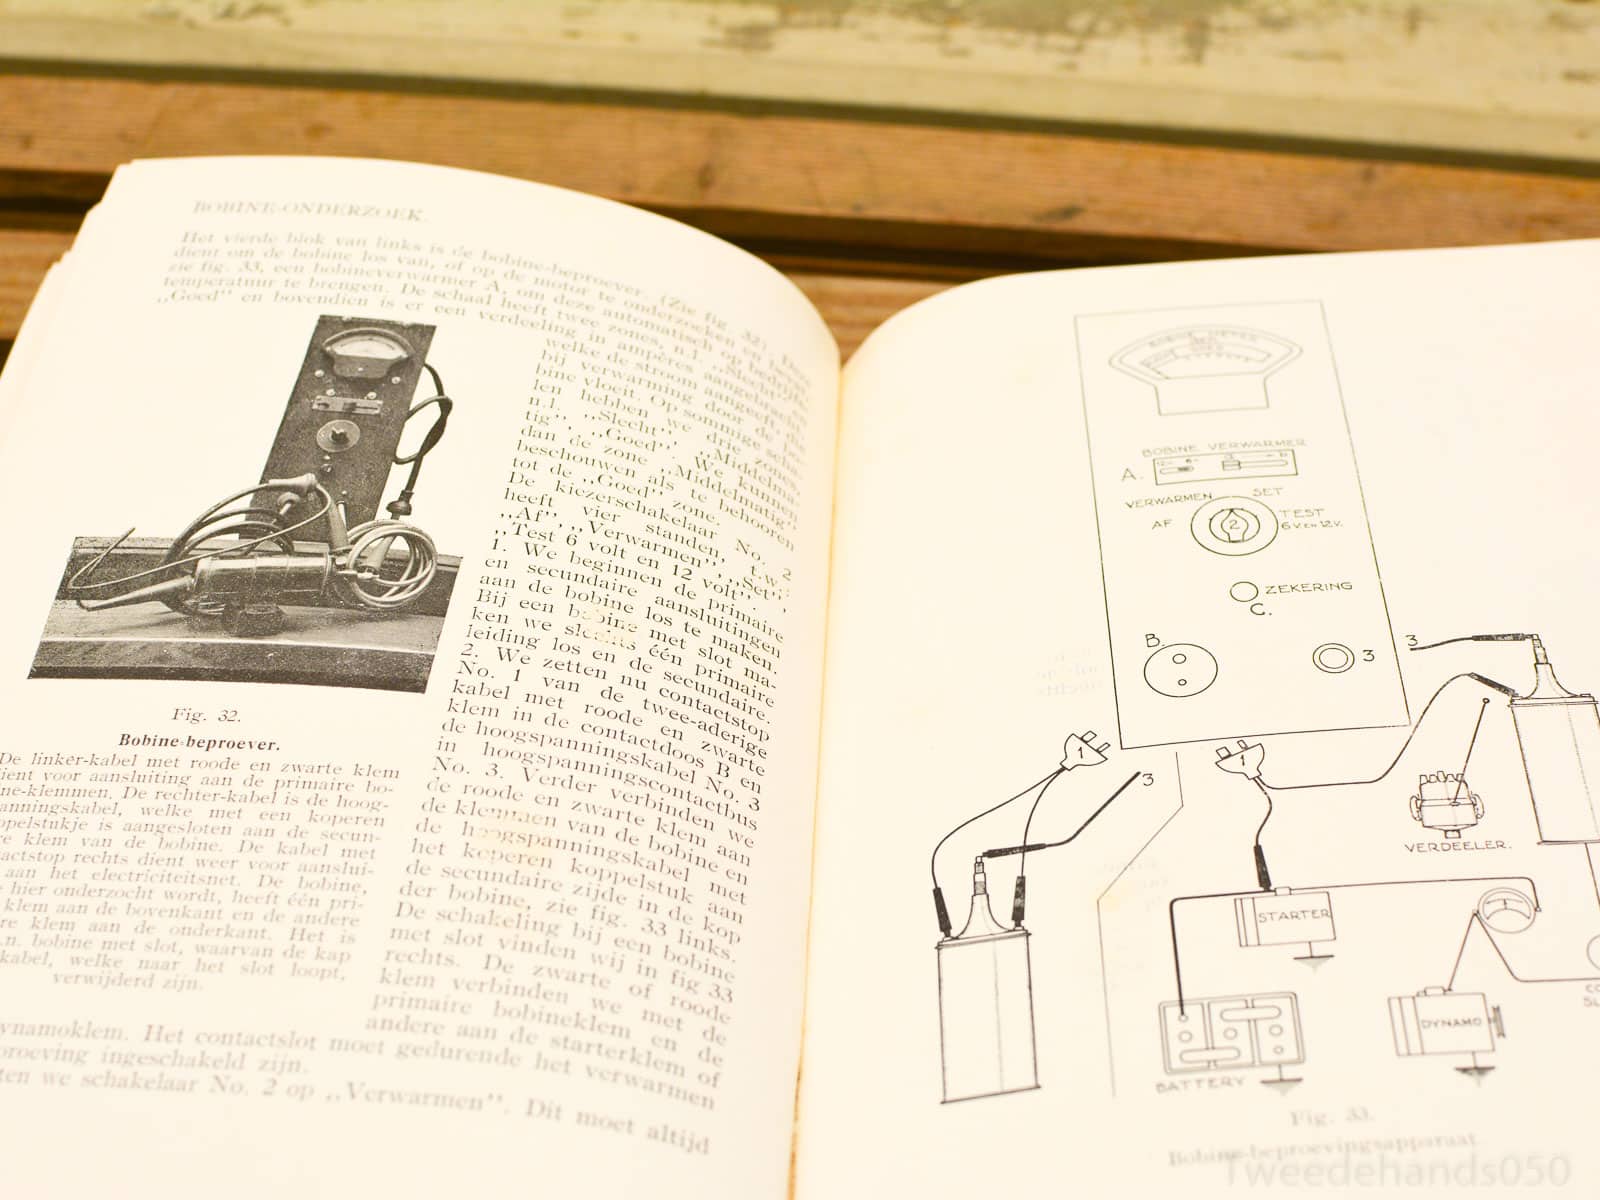 BOBINE-ONDERZOEK.
Het vierde blok van links is de bobine-beproever. (Zie fig. 32). Deze
dient om de bobine los van, of op de motor te onderzoeken en heeft,
zie fig. 33, een bobineverwarmer A, om deze automatisch op bedrijfs-
temperatuur te brengen. De schaal heeft twee zones, n.l. „Slecht" en
„Goed" en bovendien is er een verdeeling in ampères aangebracht,
welke de stroom aangeeft, die
bij verwarming door de bo-
bine vloeit. Op sommige scha-
len hebben we drie zones,
n.l. „Slecht", „Middelma-
tig", „Goed". We kunnen
dan de zone „Middelmatig"
beschouwen als te behooren
tot de „Goed" zone.
De kiezerschakelaar No. 2
heeft vier standen, t.w.:
„Af", „Verwarmen", „Set",
„Test 6 volt en 12 volt".
1. We beginnen de primaire
en secundaire aansluitingen
aan de bobine los te maken.
Bij een bobine met slot ma-
ken we slechts één primaire
leiding los en de secundaire.
2. We zetten nu contactstop
No. 1 van de twee-aderige
kabel met roode en zwarte
klem in de contactdoos B en
de hoogspanningskabel No. 3
in hoogspanningscontactbus
No. 3. Verder verbinden we
de roode en zwarte klem aan
de klemmen van de bobine en
de hoogspanningskabel met
het koperen koppelstuk aan
de secundaire zijde in de kop
der bobine, zie fig. 33 links.
De schakeling bij een bobine
met slot vinden wij in fig 33
rechts. De zwarte of roode
klem verbinden we met de
primaire bobineklem en de
andere aan de starterklem of
ynamoklem. Het contactslot moet gedurende het verwarmen
proeving ingeschakeld zijn.
ten we schakelaar No. 2 op „Verwarmen". Dit moet altijd
Fig. 32.
Bobine-beproever.
De linker-kabel met roode en zwarte klem
ient voor aansluiting aan de primaire bo-
ne-klemmen. De rechter-kabel is de hoog-
anningskabel, welke met een koperen
ppelstukje is aangesloten aan de secun-
re klem van de bobine. De kabel met
tactstop rechts dient weer voor aanslui-
aan het electriciteitsnet. De bobine,
hier onderzocht wordt, heeft één pri-
klem aan de bovenkant en de andere
re klem aan de onderkant. Het is
.n. bobine met slot, waarvan de kap
kabel, welke naar het slot loopt,
verwijderd zijn.
BOBINE METER
BOBINE VERWARMER
A.
12- 6-
VERWARMEN SET
AF 2 TEST
6 V. EN 12 V.
ZEKERING
C.
B.
3
3
1
1
3
VERDEELER.
STARTER
DYNAMO
BATTERY
CO
SL
Fig. 33.
Bobine-beproevingsapparaat.
Tweedehands050